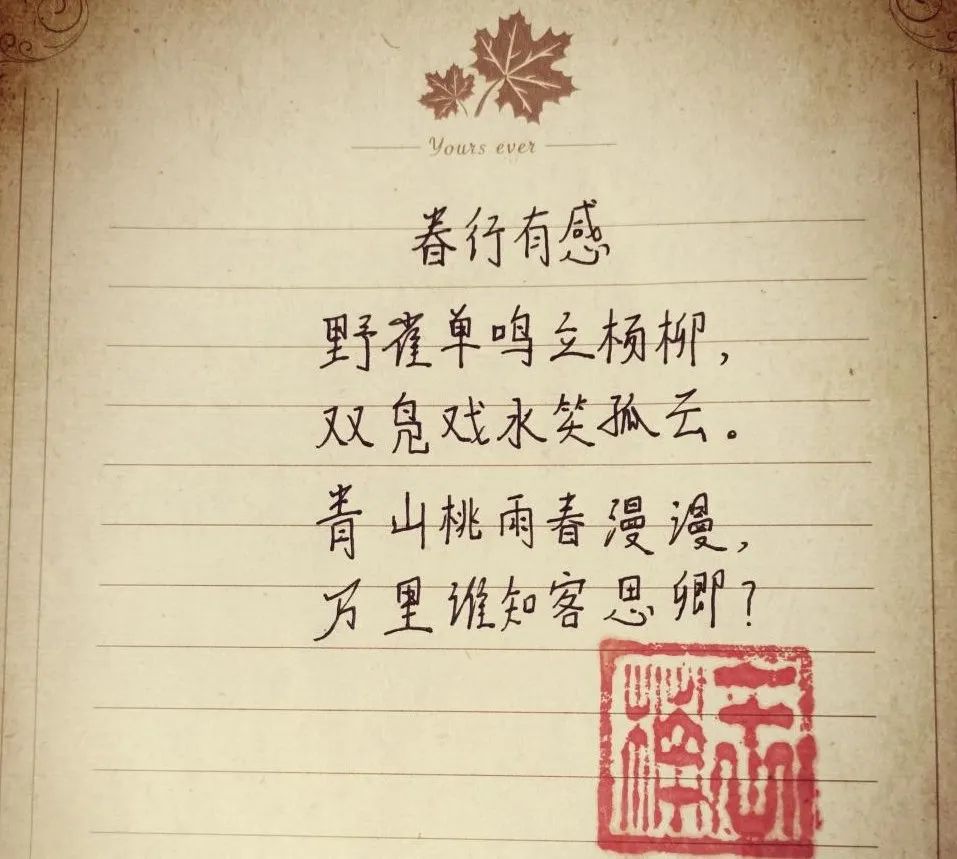 Yours ever
春行有感
野雀单鸣立杨柳，
双凫戏水笑孤云。
青山桃雨春漫漫，
万里谁知客思卿？